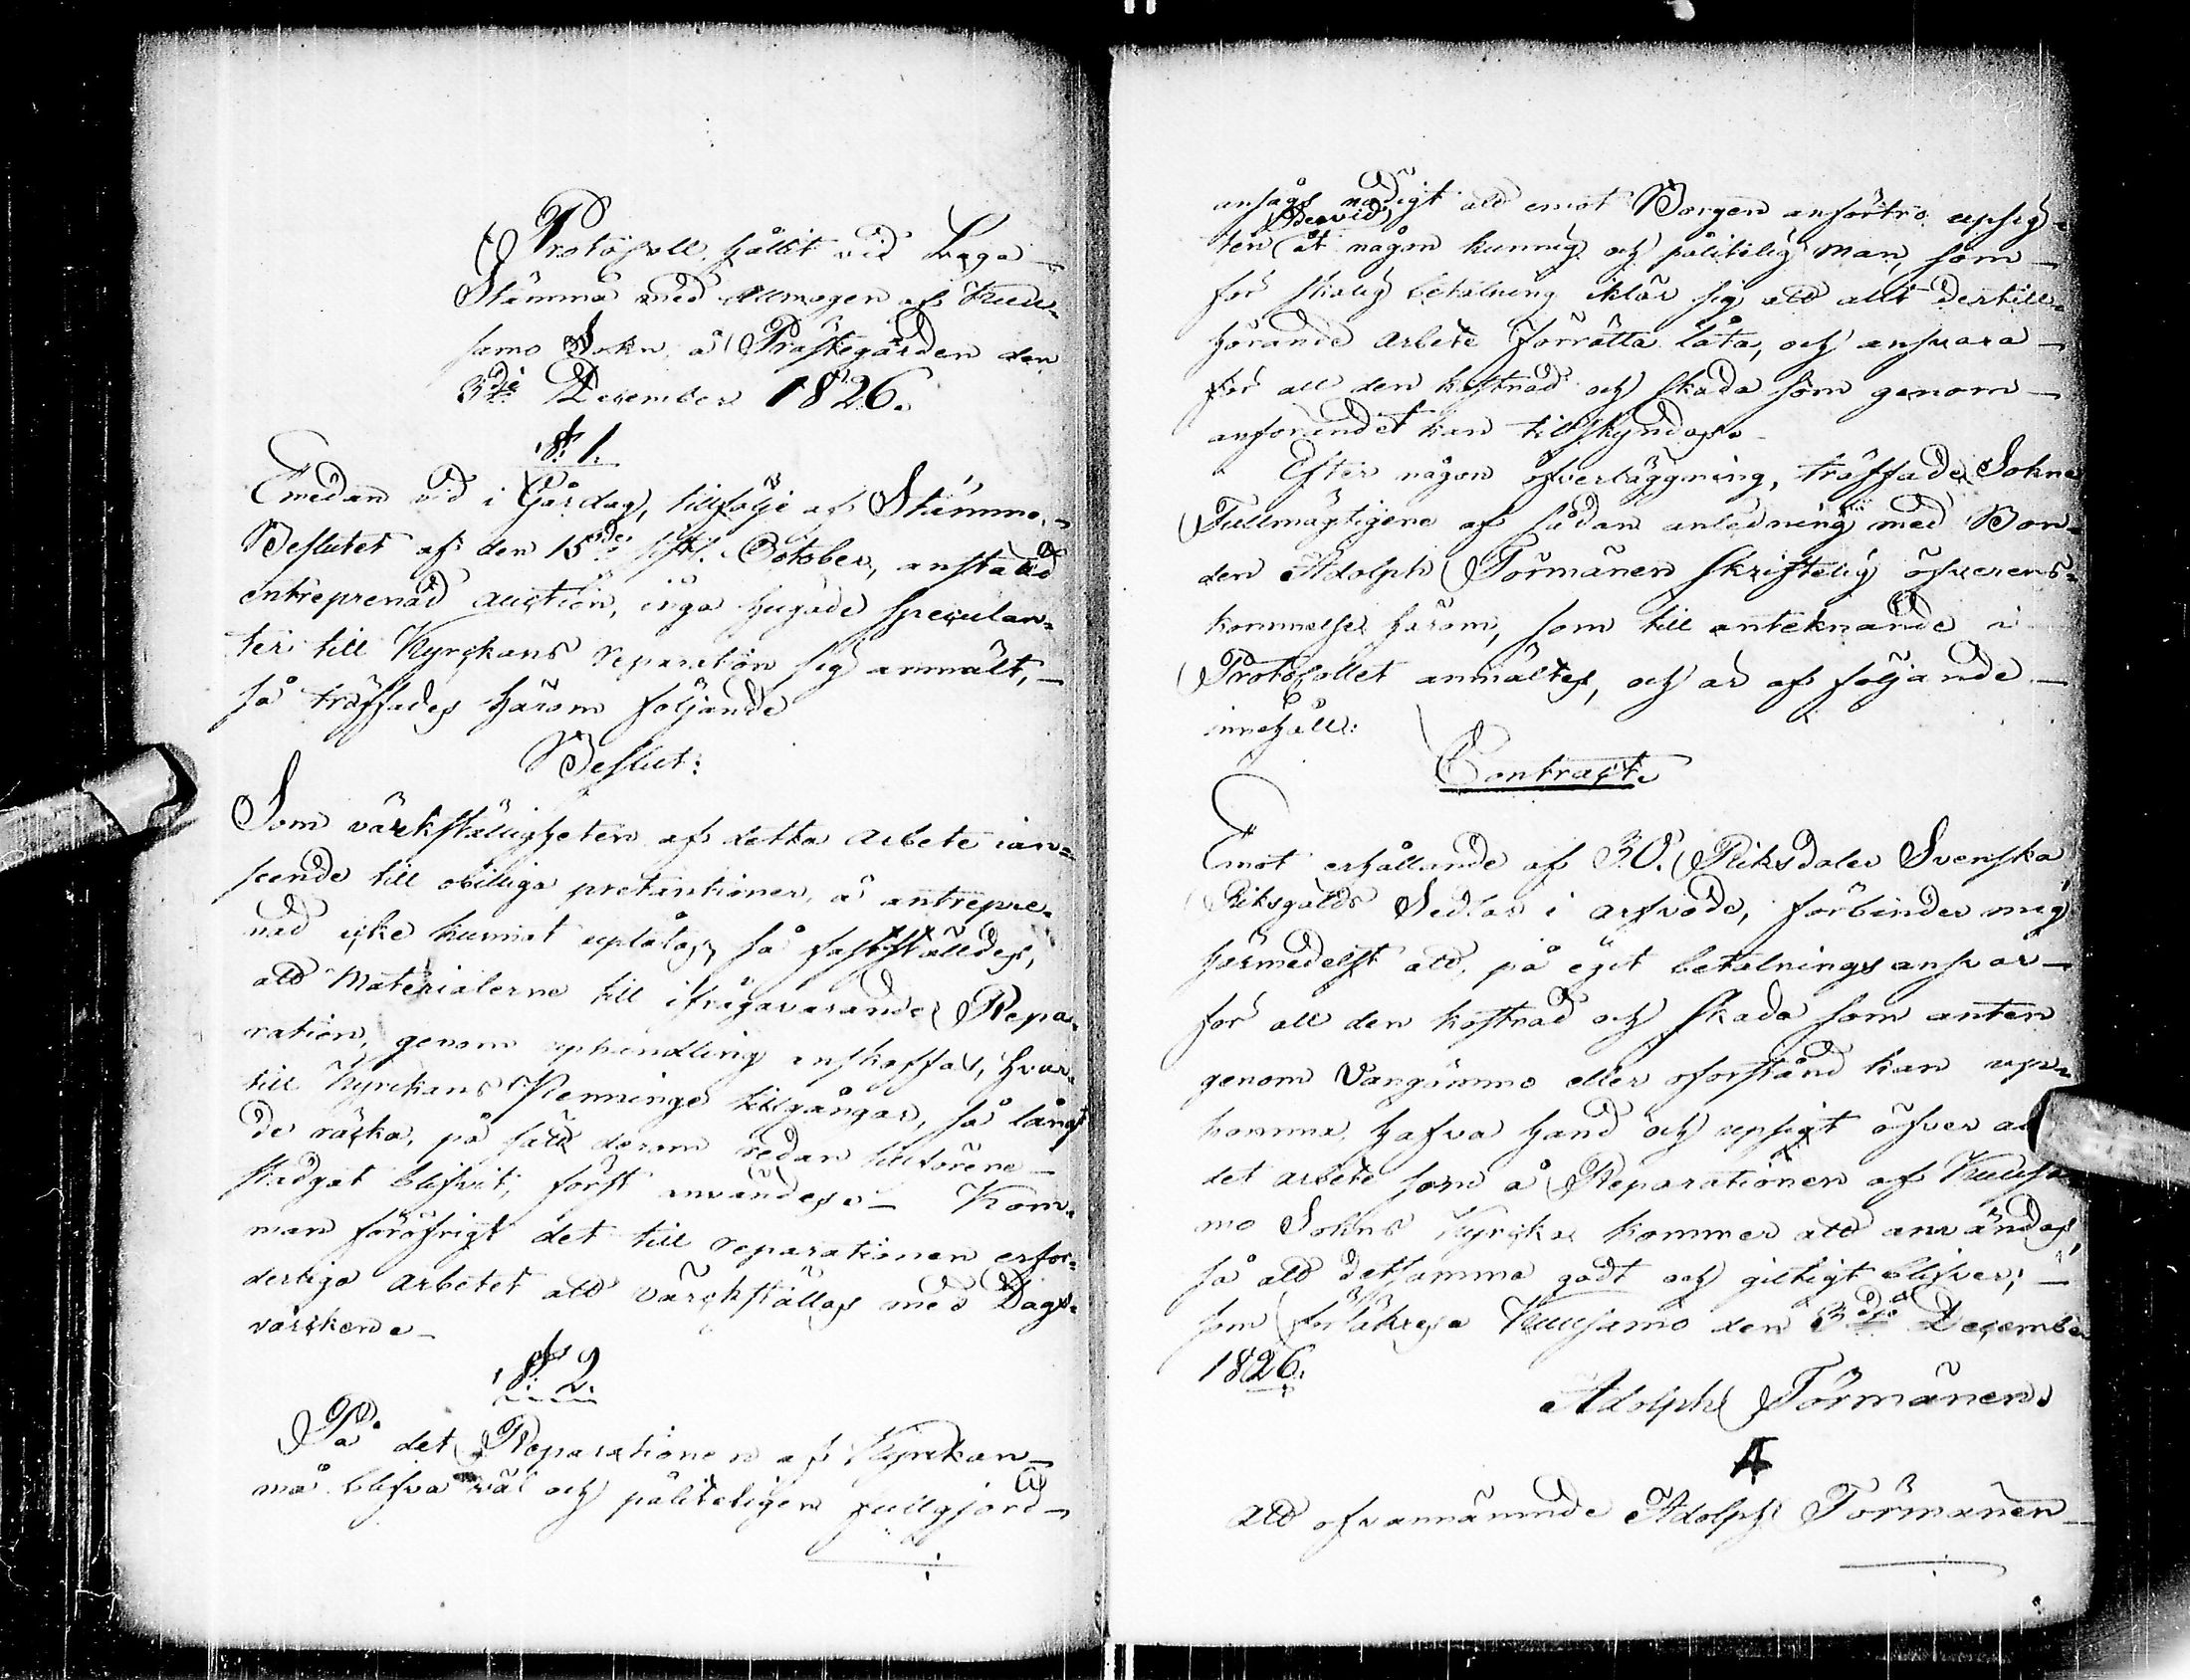 Protocoll hållit vid Laga
Stämma med Allmogen af Kuu-
samo Sokn å Prästegården den
3dje December 1826.
§ 1.
Emedan vid i Går dag, tillfölje af Stämmo-
Beslutet af den 15de sistl. October, anstäld
entreprenad auction, inga hugade speculan-
ter till Kyrckans reparation sig anmält,
så träffades härom följande
Beslut:
Som värkställigheten af detta arbete i an-
seende till obilliga pretentioner, å entrepre-
nad icke kunnat uplåtas, så fastställdes,
att Materialerne till ifrågavarande Repa-
ration, genom uphandling anskaffas, hvar-
till Kyrckans Penninge tillgångar, så långt
de räcka, på sätt derom redan tillförene
stadgat blifvit, först användes. Kom-
man föröfrigt det till reparationen erfor-
derliga arbetet att värckställas med Dags-
värckende
§ 2.
På det Reparationen af Kyrckan
må blifva väl och påliteligen fullgjord
ansågs nödigt att emot Borgen anförtro upsig-
Dervid
ten åt någon kunnig och pålitelig Man, som
för skälig betalning iklär sig att allt dertill-
hörande arbete förrätta låta, och ansvara
för all den kostnad och skada som genom
anförandet kan tillskyndas.
Efter någon öfverläggning, träffade Sokne
Fullmägtigene af sådan anledning med Bon-
den Adolph Törmänen skriftelig öfverens-
kommelse härom, som till antecknande i
Protocollet anmältes, och är af följande
innehåll:
Contract.
Emot erhållande af 30. Riksdaler Svenska
Riksgälds Sedlar i arfvode, förbinder mig
härmedelst att, på eget betalnings ansvar
för all den kostnad och skada som anten
genom Vangömmo eller oförstånd kan up-
komma, hafva hand och upsigt öfver
det arbete som å Reparationen af Kuusa-
mo Sokns Kyrcka kommer att användas,
så att detsamma godt och giltigt blifver;
som försäkras. Kuusamo den 3dje December
1826.
Adolph Törmänen
Att ofvannämnde Adolph Törmänen